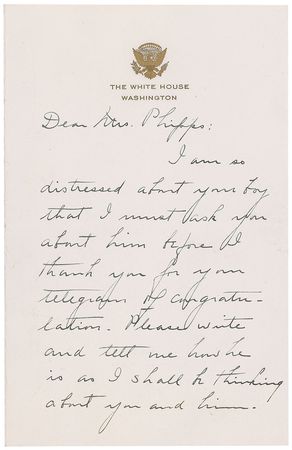 THE WHITE HOUSE
WASHINGTON
Dear Mrs. Phipps:
I am so
distressed about your boy
that I must ask you
about him before I
thank you for your
telegram of congratu-
lation. Please write
and tell me how he
is as I shall be thinking
about you and him.